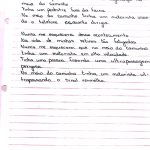 meio do caminho
tinha um
No meio do caminho tinha um motorista usan-
do o telefone enquanto dirigia.
Nunca me esquecerei desse acontecimento
Na vida de minhas retinas tão fatigadas.
Nunca me esquecerei que no meio do caminho
tinha um motorista em alta velocidade
Tinha uma pessoa fazendo uma ultrapassagem
perigosa
No meio do caminho tinha um motorista ul-
trapassando o sinal vermelho.